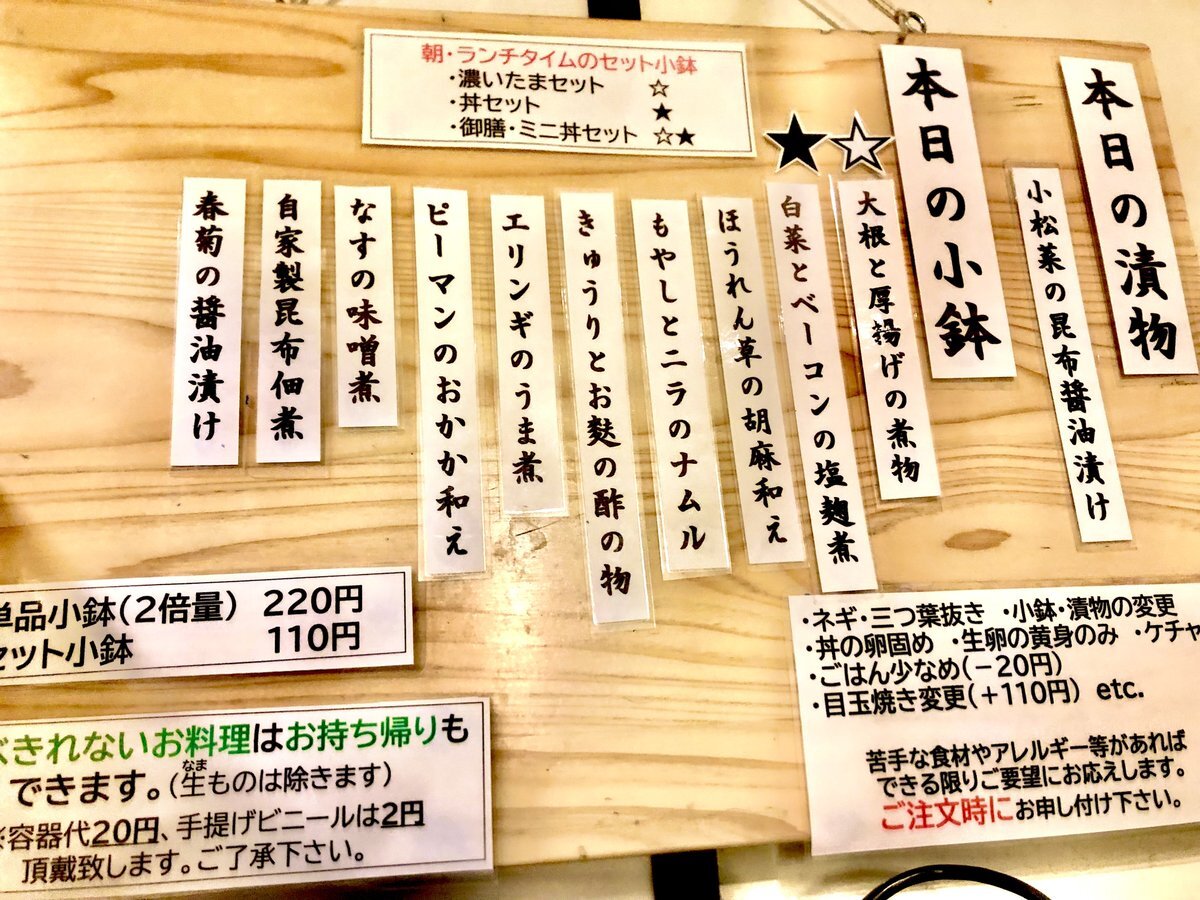 朝・ランチタイムのセット小鉢
・濃いたまセット ☆
・丼セット ★
・御膳・ミニ丼セット ☆★
本日の漬物
小松菜の昆布醤油漬け
本日の小鉢
☆
大根と厚揚げの煮物
★
白菜とベーコンの塩麹煮
ほうれん草の胡麻和え
もやしとニラのナムル
きゅうりとお麩の酢の物
エリンギのうま煮
ピーマンのおかか和え
なすの味噌煮
自家製昆布佃煮
春菊の醤油漬け
単品小鉢(2倍量) 220円
セット小鉢 110円
べきれないお料理はお持ち帰りも
できます。(生ものは除きます)
なま
※容器代20円、手提げビニールは2円
頂戴致します。ご了承下さい。
・ネギ・三つ葉抜き ・小鉢・漬物の変更
・丼の卵固め ・生卵の黄身のみ ・ケチャ
・ごはん少なめ(－20円)
・目玉焼き変更(＋110円) etc.
苦手な食材やアレルギー等があれば
できる限りご要望にお応えします。
ご注文時にお申し付け下さい。